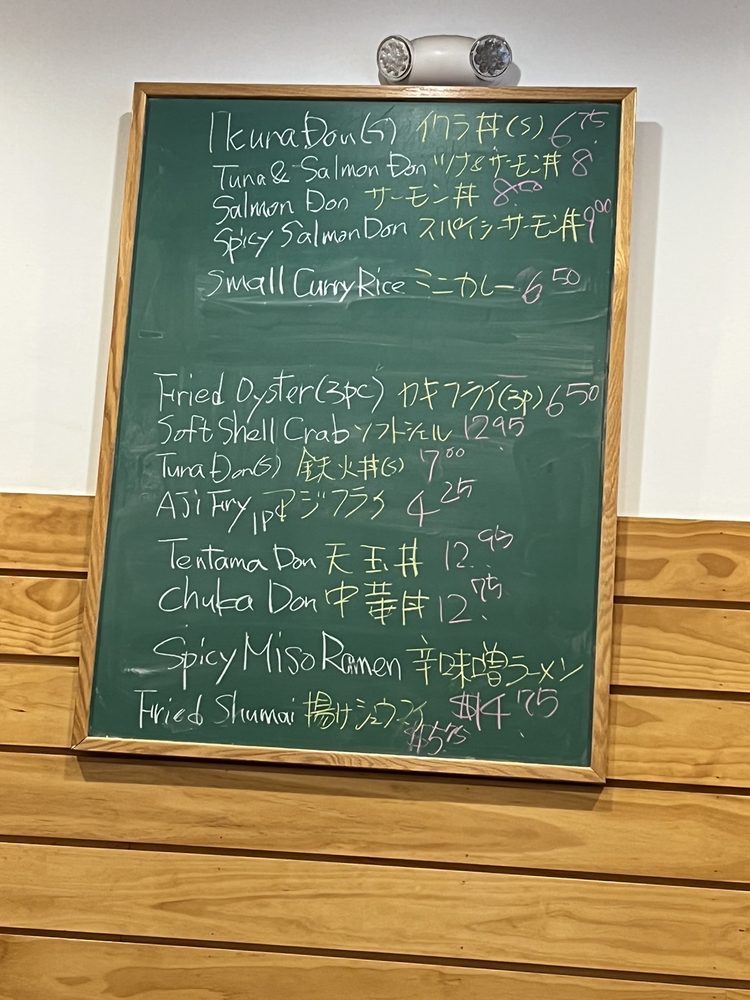 Ikura Don(S) イクラ丼(S) 6 75
Tuna & Salmon Don ツナ&サーモン丼 8
Salmon Don サーモン丼 8 00
Spicy Salmon Don スパイシーサーモン丼 9 00
Small Curry Rice ミニカレー 6 50
Fried Oyster (3pc) カキフライ(3p) 6 50
Soft Shell Crab ソフトシェル 12 95
Tuna Don(S) 鉄火丼(S) 7 00
AJi Fry 1pc アジフライ 4 25
Tentama Don 天玉丼 12 95
Chuka Don 中華丼 12 75
Spicy Miso Ramen 辛味噌ラーメン
Fried Shumai 揚げシュウマイ $14 75
$5 75